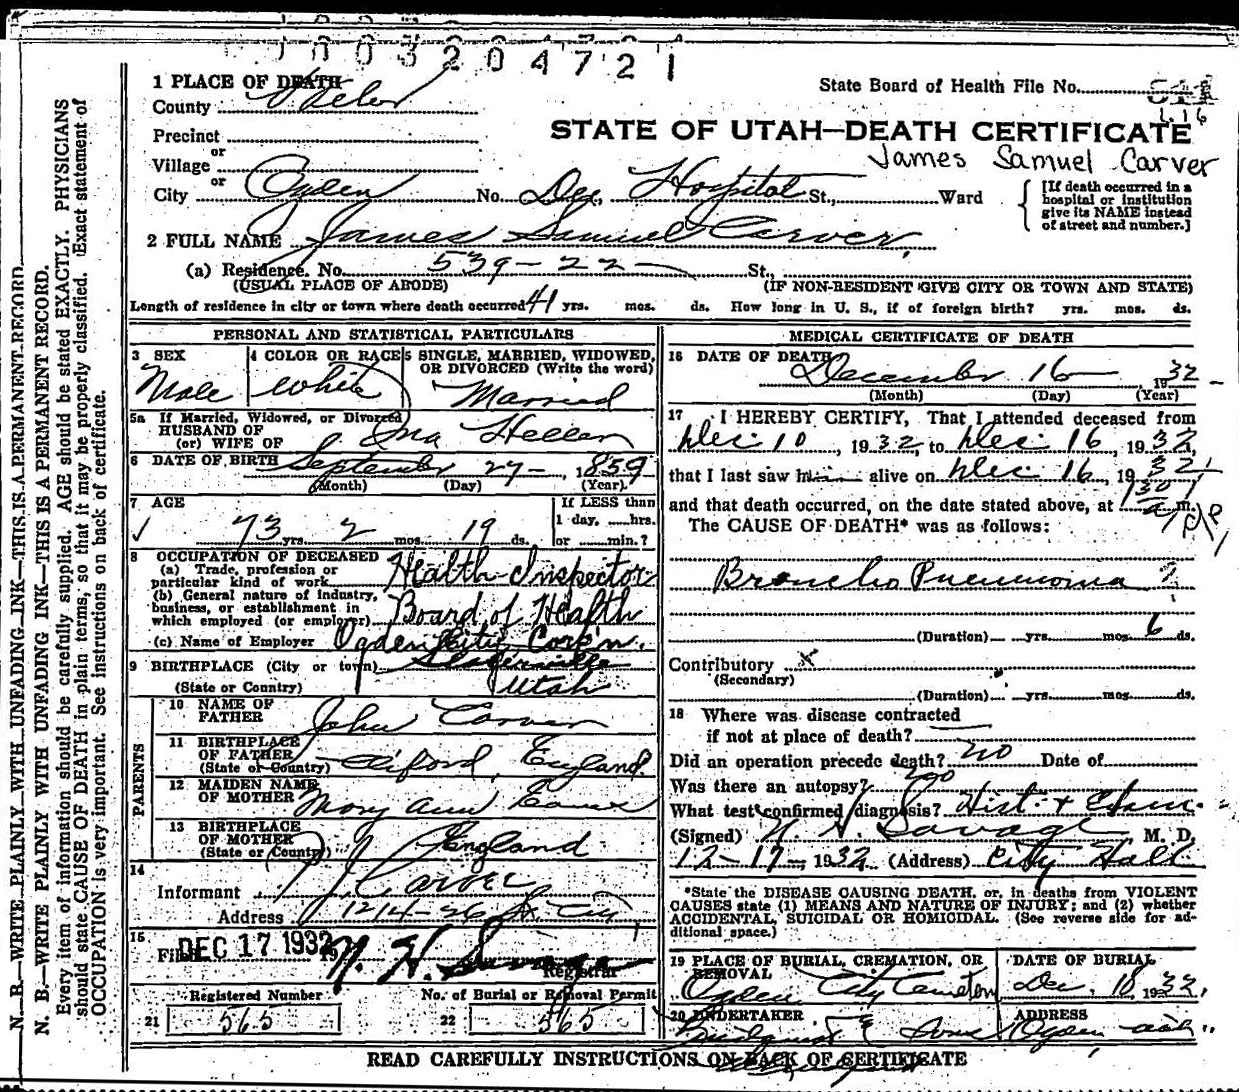 1003204721
1 PLACE OF DEATH
State Board of Health File No.
County Weber
STATE OF UTAH—DEATH CERTIFICATE
Precinct
James Samuel Carver
or
Village
or
City Ogden No. Dee Hospital St., Ward
[If death occurred in a
hospital or institution
give its NAME instead
of street and number.]
2 FULL NAME James Samuel Carver
(a) Residence. No. 539-22- St.,
(USUAL PLACE OF ABODE) (IF NON-RESIDENT GIVE CITY OR TOWN AND STATE)
Length of residence in city or town where death occurred 41 yrs. mos. ds. How long in U. S., if of foreign birth? yrs. mos. ds.
PERSONAL AND STATISTICAL PARTICULARS
3 SEX
Male
4 COLOR OR RACE
White
5 SINGLE, MARRIED, WIDOWED,
OR DIVORCED (Write the word)
Married
5a If Married, Widowed, or Divorced
HUSBAND OF
(or) WIFE OF
6 DATE OF BIRTH September 27- 1859
(Month) (Day) (Year)
7 AGE
73 yrs. 2 mos. 19 ds.
If LESS than
1 day, hrs.
or min.?
8 OCCUPATION OF DECEASED
(a) Trade, profession or
particular kind of work Health Inspector
(b) General nature of industry,
business, or establishment in
which employed (or employer) Board of Health
(c) Name of Employer Ogden City Corp'n.
9 BIRTHPLACE (City or town)
(State or Country) Utah
PARENTS
10 NAME OF
FATHER John Carver
11 BIRTHPLACE
OF FATHER
(State or Country) England
12 MAIDEN NAME
OF MOTHER Mary Ann
13 BIRTHPLACE
OF MOTHER
(State or Country) England
14
Informant J Carver
Address
15
Filed DEC 17 1932 N. H. Savage
Registrar
Registered Number
21 565
No. of Burial or Removal Permit
22 565
MEDICAL CERTIFICATE OF DEATH
16 DATE OF DEATH
December 16 1932
(Month) (Day) (Year)
17 I HEREBY CERTIFY, That I attended deceased from
Dec 10, 1932, to Dec. 16, 1932,
that I last saw him alive on Dec 16, 1932
and that death occurred, on the date stated above, at 130 a m.
The CAUSE OF DEATH* was as follows:
Broncho Pneumonia
(Duration) yrs. mos. 6 ds.
Contributory
(Secondary)
(Duration) yrs. mos. ds.
18 Where was disease contracted
if not at place of death?
Did an operation precede death? no Date of
Was there an autopsy? no
What test confirmed diagnosis? Hist. + Exam.
(Signed) N. H. Savage M. D.
12-17-, 1932 (Address) City Hall
*State the DISEASE CAUSING DEATH, or, in deaths from VIOLENT
CAUSES state (1) MEANS AND NATURE OF INJURY; and (2) whether
ACCIDENTAL, SUICIDAL OR HOMICIDAL. (See reverse side for ad-
ditional space.)
19 PLACE OF BURIAL, CREMATION, OR
REMOVAL
Ogden City Cemetery
DATE OF BURIAL
Dec. 18, 1932.
20 UNDERTAKER
& Sons
ADDRESS
Ogden Utah
READ CAREFULLY INSTRUCTIONS ON BACK OF CERTIFICATE
N. B.—WRITE PLAINLY WITH UNFADING INK—THIS IS A PERMANENT RECORD.
N. B.—WRITE PLAINLY WITH UNFADING INK—THIS IS A PERMANENT RECORD.
Every item of information should be carefully supplied. AGE should be stated EXACTLY. PHYSICIANS
should state CAUSE OF DEATH in plain terms, so that it may be properly classified. Exact statement of
OCCUPATION is very important. See instructions on back of certificate.